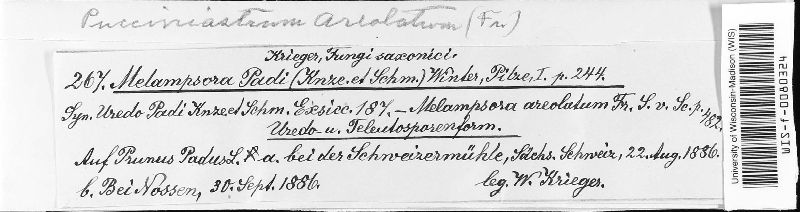 Pucciniastrum areolatum (Fr.)
Krieger, Fungi saxonici.
267. Melampsora Padi (Knze. et Schm.) Winter, Pilze, I. p. 244.
Syn. Uredo Padi Knze et Schm. Exsicc. 187. — Melampsora areolatum Fr. S. v. Sc. p. 482.
Uredo- u. Teleutosporenform.
Auf Prunus Padus L. a. bei der Schweizermühle, Sächs. Schweiz, 22. Aug. 1886.
b. Bei Nossen, 30. Sept. 1886. leg. W. Krieger.
University of Wisconsin-Madison (WIS)
WIS-f-0060324